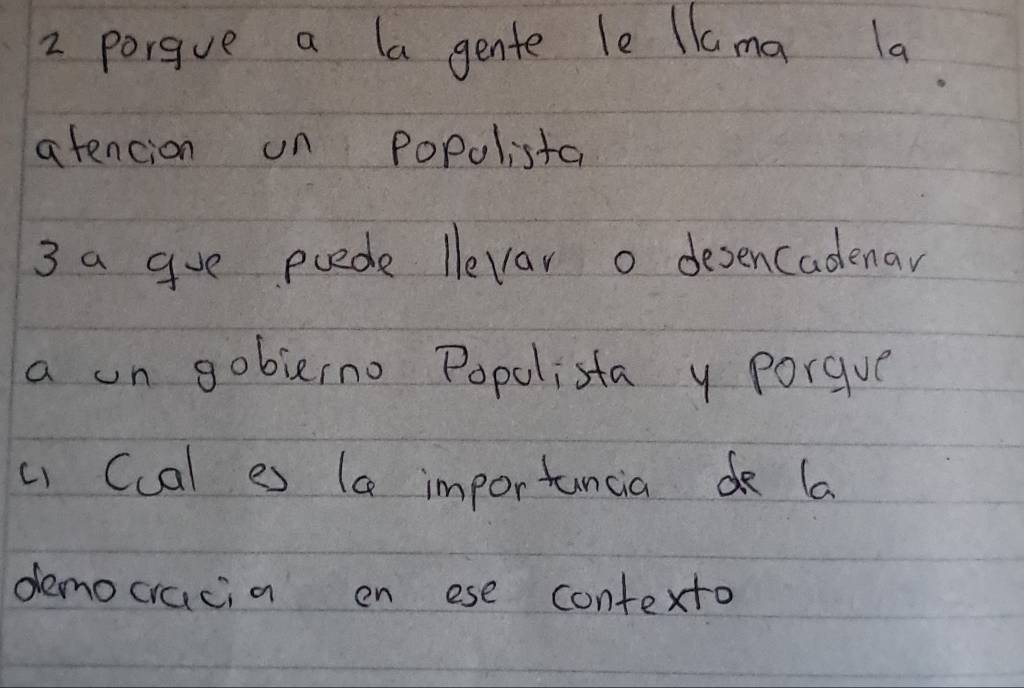 2 porque a la gente le llama la
atencion un Populista
3 a que puede llevar o desencadenar
a un gobierno Populista y porque
4 Cual es la importancia de la
democracia en ese contexto